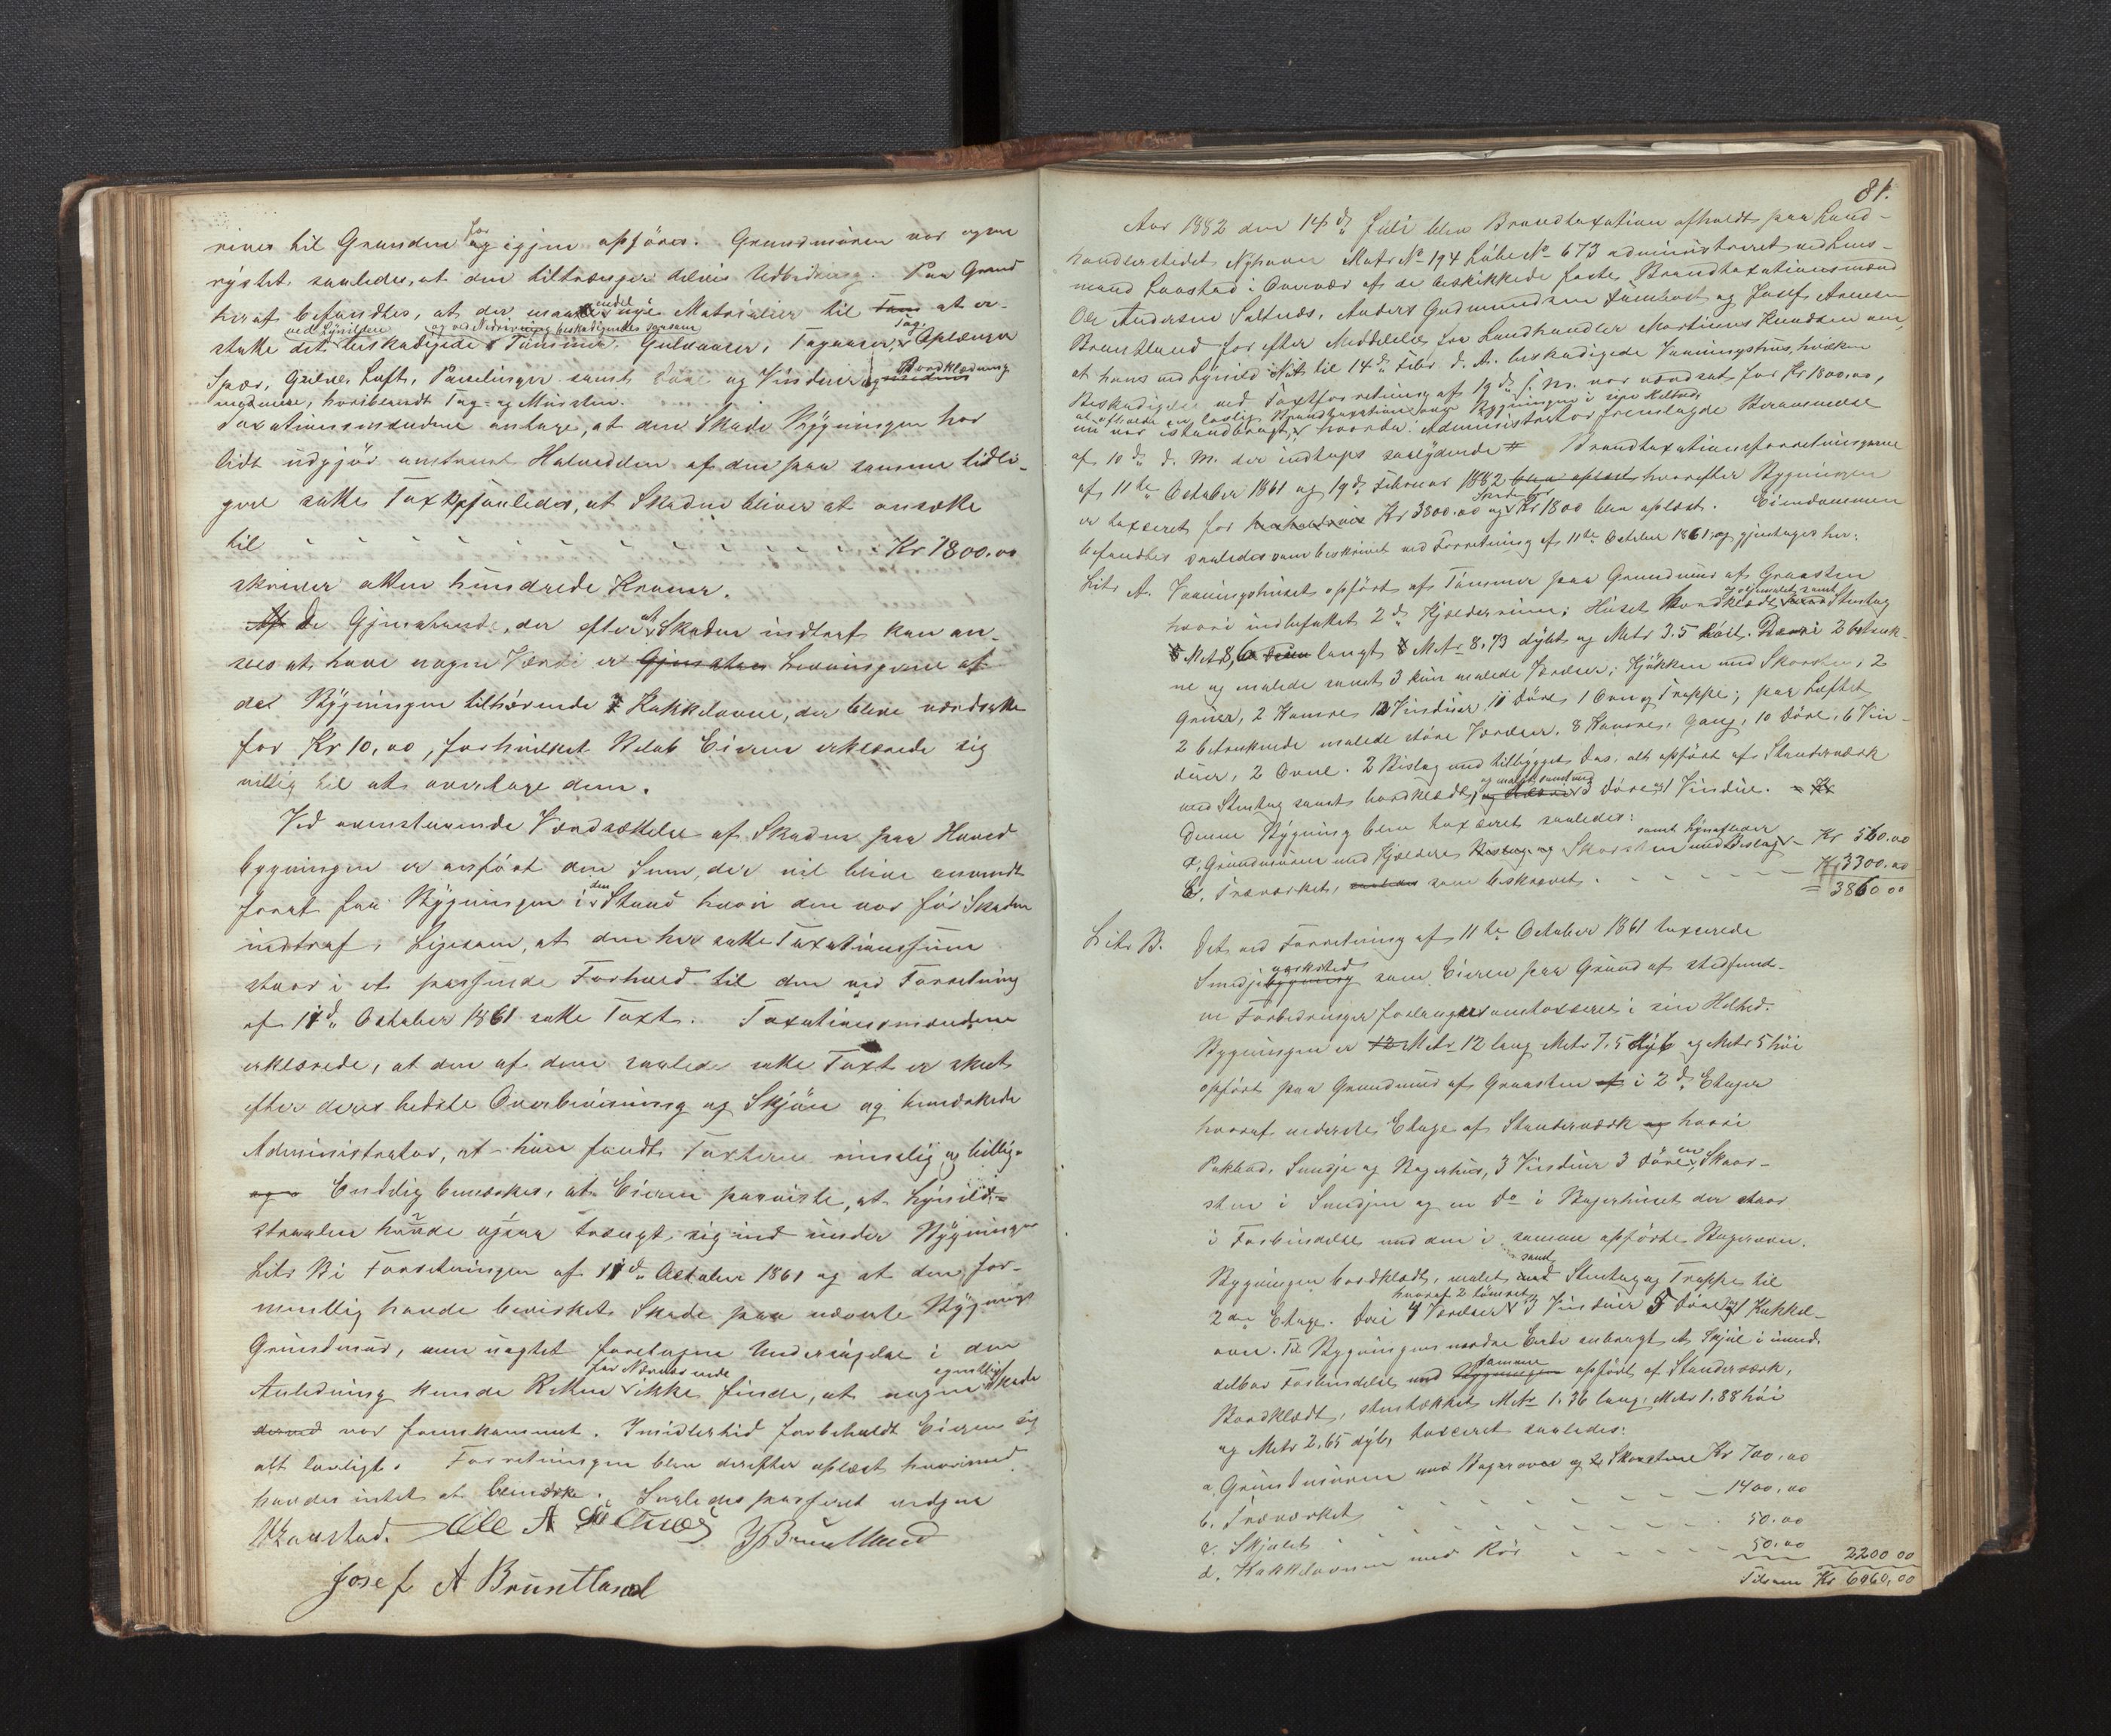 rives til Grunden for og igjen opføres. Grundmuren var ogsaa
rystet saaledes, at den tiltrænger delvis Udbedring. Paa Grund
heraf befandtes, at der maatte endel nye Materialier til at er-
statte det ved Lynilden beskadigede og ved Nedrivning beskadigendes saasom Tømmer, Gulvaaser, Tagaaser, Tag, Oplænger
Spær, Gulve, Loft, Panelinger samt Døre og Vinduer Bordklædning
med mere, heriberandt Tag- og Mursten.
Taxationsmændene antage, at den Skade Bygningen har
lidt udgjør omtrent Halvedelen af den paa samme tidli-
gere satte Taxt saaledes, at Skaden bliver at ansætte
til - - - - Kr 1800.00
skriver atten hundrede Kroner.
De Gjenstande, der efter at Skaden indtraf kan an-
sees at have nogen Værdi er Levningerne af
de Bygningen tilhørende 2 Kakkelovne, der bleve værdsatte
for Kr 10,00, forhvilket Beløb Eieren erklærede sig
villig til at overtage dem.
Ved ovenstaaende Værdsættelse af Skaden paa Hoved
bygningen er anført den Sum, der vil blive anvendt
forat faa Bygningen i den Stand hvori den var før Skaden
indtraf, Ligesom, at den her satte Taxationssum
staar i et passende Forhold til den ved Forretning
af 11d. October 1861 satte Taxt. Taxationsmændene
erklærede, at den af dem saaledes satte Taxt er skeet
efter deres bedste Overbevisning og Skjøn og bemærkede
Administrator, at han fandt Taxterne rimelig og billig.
Endelig bemærkes, at Eieren paaviste, at Lynild-
straalen havde ogsaa trængt sig ind under Bygningen
Litr B i Forretningen af 11d. October 1861 og at den for-
mentlig havde bevirket Skade paa nævnte Bygnings
Grundmur, men uagtet foretagen Undersøgelse i den
Anledning kunde Retten for Nærværende ikke finde, at nogen egentlig Skade
derved var fremkommet. Imidlertid forbeholdt Eieren sig
alt lovligt. Forretningen blev derefter oplæst hvorimod
havdes intet at bemærke. Saaledes passeret vidner
Ole A Saltnæs
Josef A Bruntland
81.
Aar 1882 den 14d. Juli blev Brandtaxation afholdt paa Land-
handlerstedet Nyhavn Matr No 194 Løbe No 673 administreret ved Lens-
mand Laastad i Overvær af de beskikkede faste Brandtaxationsmænd
Ole Andersen Saltnæs, Anders Gudmundsen og Josef Arnesen
Bruntland for efter Meddelelse fra Landhandler Martinus Knudsen om,
at hans ved Lynild Nat til 14d. Febr d. A. beskadigede Vaaningshus, hvilken
Beskadigelse ved Taxtforretning af 19d. s. M. var værdsat for Kr 1800.00,
nu var istandbragt, at afholde en lovlig Brandtaxation over Bygningen i sin Helhed
hvorda Administrator fremlagde Berammelse
af 10d. d. M. der indtages saalydende # Brandtaxationsforretningerne
af 11te October 1861 og 19d. Februar 1882 hvorefter Bygningen
er taxeret for Kr 3800.00 og Skaden for Kr 1800 blev oplæst. Eiendommen
befandtes saaledes som beskrevet ved Forretning af 11te October 1861 og gjentages her:
Litr A. Vaaningshuset opført af Tømmer paa Grundmur af Graasten
hvori indbefattet 2d. Kjælderrum; Huset Bordklædt og oljemalet samt Stentag
Metr 8,6 langt Metr 8.73 dybt og Metr 3.5 høit. Deri 2 betruk-
ne og malede samt 3 kun malede Værelser, Kjøkken med Skorsten, 2
Gange, 2 Kamre 12 Vinduer 11 Døre 1 Ovn og Trappe; paa Loftet
2 betrukne malede større Værelser, 8 Kamre, Gang, 10 Døre, 6 Vin-
duer, 2 Ovne. 2 Bislag med tilbygget Das, alt opført af Standerværk
med Stentag samt bordklædt og malet samt med 3 Døre og 1 Vindue.
Denne Bygning blev taxeret saaledes:
a, Grundmuren med Kjældere Skorsten med Beslag samt Lynafleder - Kr 560.00
b, Træværket, som beskrevet - - - - - Kr 3300.00
= 3860 00
Litr B. Det ved Forretning af 11te October 1861 taxerede
Smedjeværksted som Eieren paa Grund af stedfund-
ne Forbedringer forlanger omtaxeret i sin Helhed.
Bygningen er Metr 12 lang Metr 7,5 dyb og Metr 5 høi
opført paa Grundmur af Graasten i 2d. Etager
hvoraf nederste Etage af Standerværk hvori
Pakbod, Smedje og Bagerhus, 3 Vinduer 3 Døre, en Skor-
sten i Smedjen og en do i Bagerhuset der staar
i Forbindelse med den i samme opførte Bagerovn.
Bygningen bordklædt, malet samt Stentag og Trappe til
2den Etage. Deri 4 Værelser hvoraf 2 tømret 3 Vinduer 5 Døre og 1 Kakkel-
ovn. Til Bygningens nordre Ende anbragt et Skjul i umid-
delbar Forbindelse med samme opført af Standerværk,
Bordklædt, stentækket Metr 1.36 lang, Metr 1.88 høi
og Metr 2,65 dyb, taxeret saaledes:
a, Grundmuren med Bagerovn og 2 Skorstene Kr 700,00
b. Træværket - - - - - 1400,00
c. Skjulet - - - - - 50.00
d. Kakkelovnen med Rør - - - - - 50.00 2200 00
Tilsam Kr 6060,00